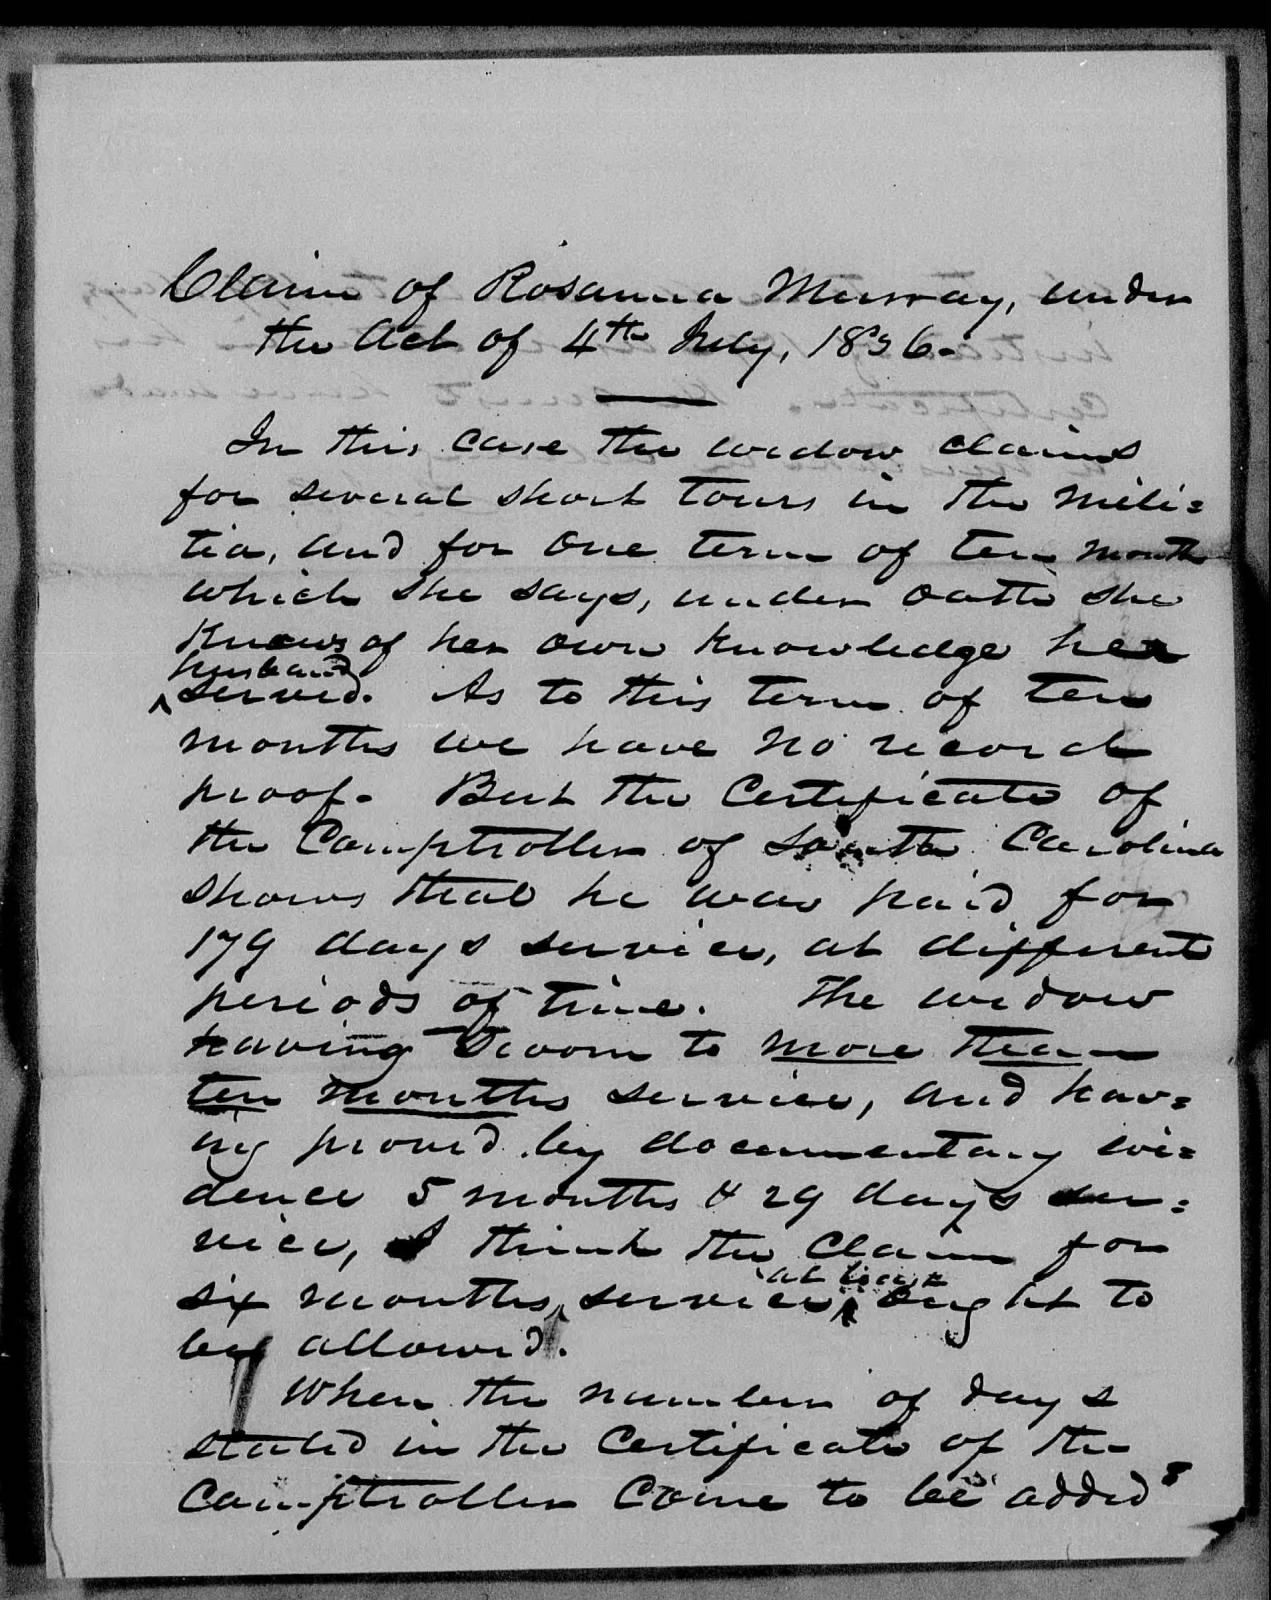 Claim of Rosanna Murray, under
the Act of 4th July, 1836.
In this case the widow claims
for several short tours in the mili=
tia, and for one term of ten months
which she says, under oath she
knows of her own knowledge her
husband
^ served. As to this term of ten
months we have no record
proof. But the Certificate of
the Comptroller of South Carolina
shows that he was paid for
179 days service, at different
periods of time. The widow
having sworn to more than
ten months service, and hav=
ing proved by documentary evi=
dence 5 months & 29 days ser=
vice, I think the claim for
at least
six months service, ^ ought to
be allowed.
When the number of days
stated in the Certificate of the
Comptroller come to be added